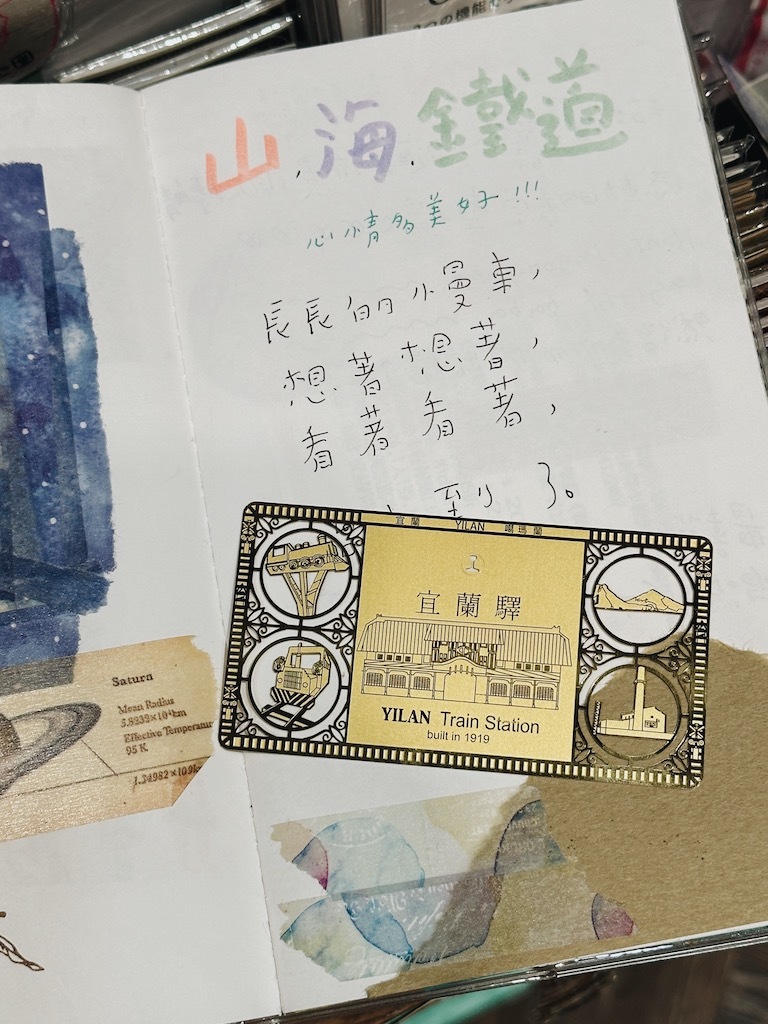 の機能
山,海.鐵道
心情多美好!!!
長長的慢車,
想著想著,
看著看著,
到了。
宜蘭 YILAN 噶瑪蘭
宜蘭驛
YILAN Train Station
built in 1919
Saturn
Mean Radius
5.8232×10⁴km
Effective Temperatur
95 K